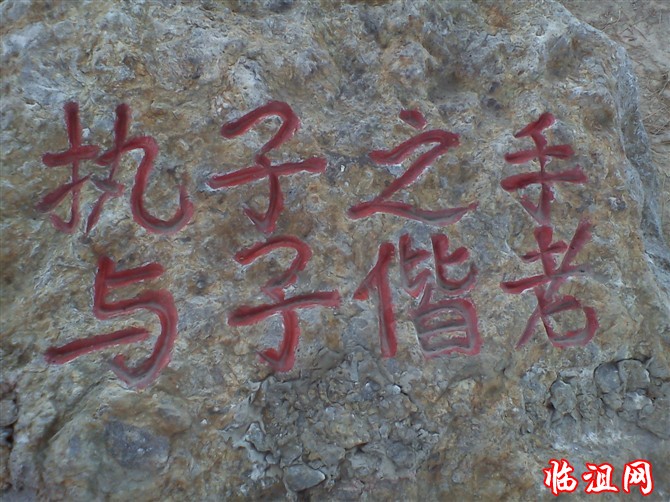 执子之手
与子偕老
临沮网